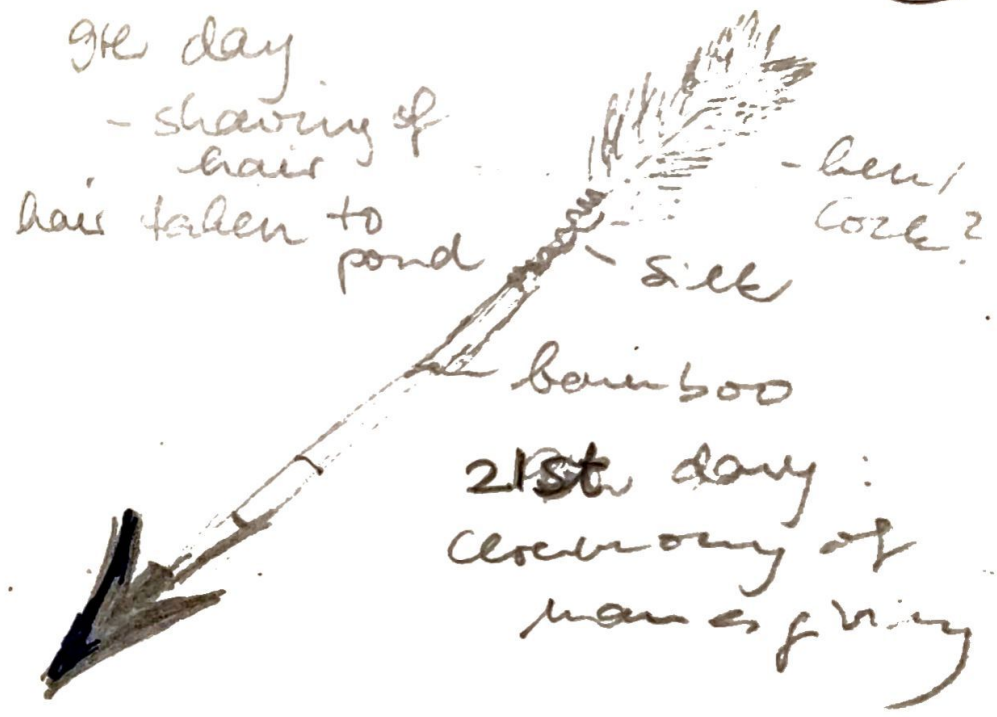 9te day
- shaving of
hair
hair taken to
pond
- hen/
cock?
silk
bamboo
21st day :
ceremony of
namesgiving